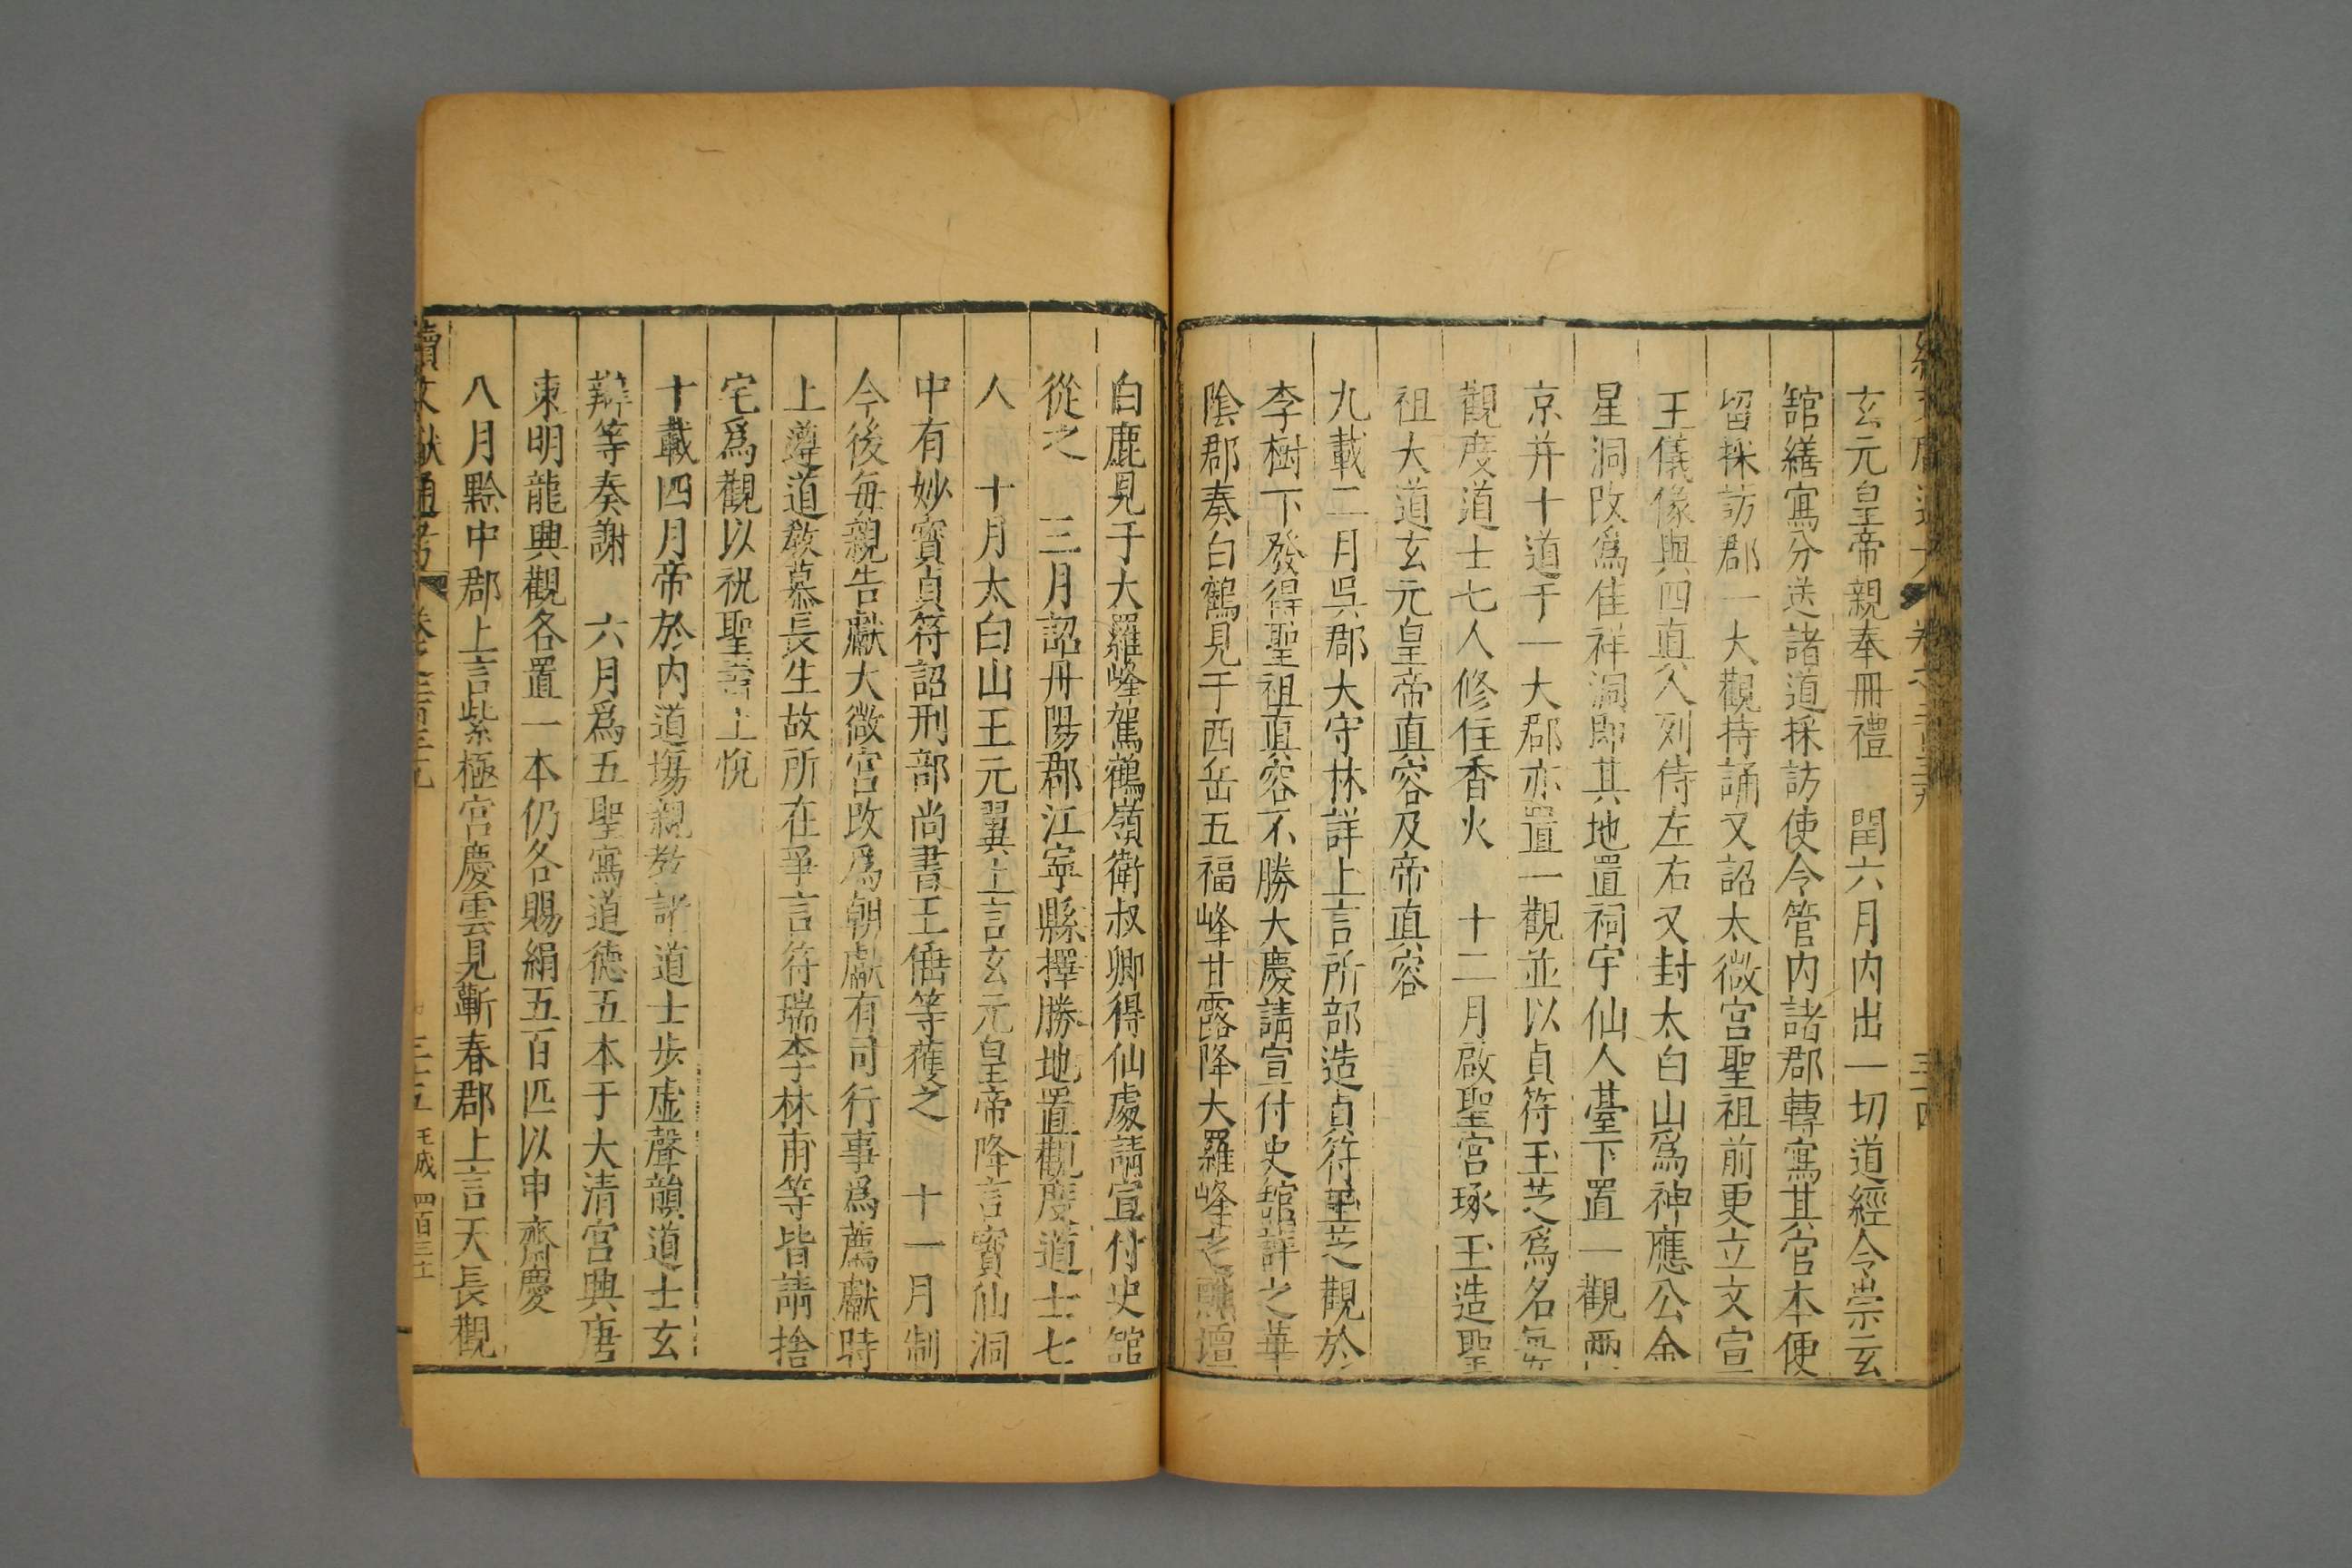 玄元皇帝親奉冊禮　閏六月内出一切道經令崇玄
館繕寫分送諸道採訪使令管内諸郡轉寫其官本便
留採訪郡一大觀持誦又詔太微宮聖祖前更立文宣
王儀像與四真人列侍左右又封太白山為神應公金
星洞改為佳祥洞即其地置祠宇仙人臺下置一觀兩
京并十道于一大郡亦置一觀並以貞符玉芝為名每
觀度道士七人修住香火　十二月啟聖宮琢玉造聖
祖大道玄元皇帝真容及帝真容
九載二月吳郡大守林詳上言所部造貞符玉芝觀於
李樹下發得聖祖真容不勝大慶請宣付史館許之華
陰郡奏白鶴見于西岳五福峰甘露降大羅峰之醮壇
白鹿見于大羅峰駕鶴嶺衛叔卿得仙處請宣付史館
從之　三月詔丹陽郡江寧縣擇勝地置觀度道士七
人　十月太白山王元翼上言玄元皇帝降言寶仙洞
中有妙寳貞符詔刑部尚書王倕等獲之　十一月制
今後每親告獻大微宮改為朝獻有司行事為薦獻時
上遵道教慕長生故所在爭言符瑞李林甫等皆請捨
宅為觀以祝聖壽上悅
十載四月帝於内道塲親教諸道士步虛聲韻道士玄
辯等奏謝　六月為五聖寫道德五本于大清宮興唐
東明龍興觀各置一本仍各賜絹五百匹以申齋慶
八月黔中郡上言紫極宮慶雲見蘄春郡上言天長觀
續文獻通考　三十五